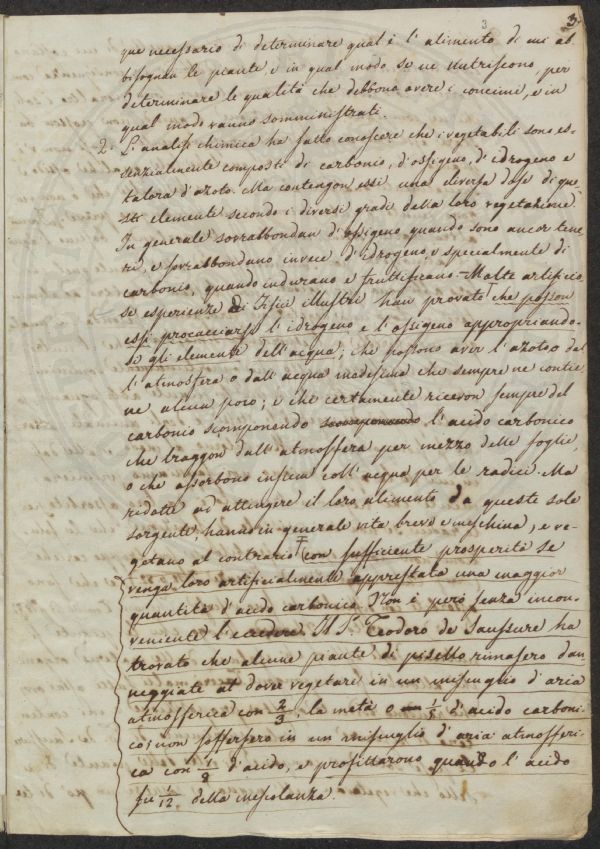 3
3.
que necessario di determinare qual è l'alimento di cui ab
bisognan le piante e in qual modo se ne nutriscono, per
determinare le qualità che debbono avere i concimi, e in
qual modo vanno somministrati.
2. L'analisi chimica ha fatto conoscere che i vegetabili sono es-
senzialmente composti di carbonio, d'ossigeno, d'idrogeno e
talora d'azoto. Ma contengon essi una diversa dose di que-
sti elementi secondo i diversi gradi della loro vegetazione
In generale sovrabbondan d'ossigeno quando sono ancor tene
ri, e sovrabbondano invece d'idrogeno, e specialmente di
carbonio, quando indurano e fruttificano. Molte artificio
se esperienze di Fisici illustri han provato che posson
essi procacciarsi l'idrogeno e l'ossigeno appropriando-
si gli elementi dell'acqua; che possono aver l'azoto o dal
l'atmosfera o dall'acqua medesima che sempre ne contie
ne alcun poco; e che certamente ricevon sempre del
carbonio scomponendo l'acido carbonico
che traggon dall'atmosfera per mezzo delle foglie,
o che assorbono insieme coll'acqua per le radici. Ma
ridotte ad attingere il loro alimento da queste sole
sorgente hanno in generale vita breve e meschina, e ve-
getano al contrario con sufficiente prosperità se
venga loro artificialmente apprestata una maggior
quantità d'acido carbonico. Non è però senza incon-
veniente l'eccedere. Il Sr. Teodoro de Saussure ha
trovato che alcune piante di pisello rimasero dan
neggiate al dover vegetare in un miscuglio d'aria
atmosferica con 2/3, la metà o 1/5 d'acido carboni
co; non soffersero in un miscuglio d'aria atmosferi-
ca con 1/8 d'acido, e profittarono quando l'acido
fu 1/12 della mescolanza.